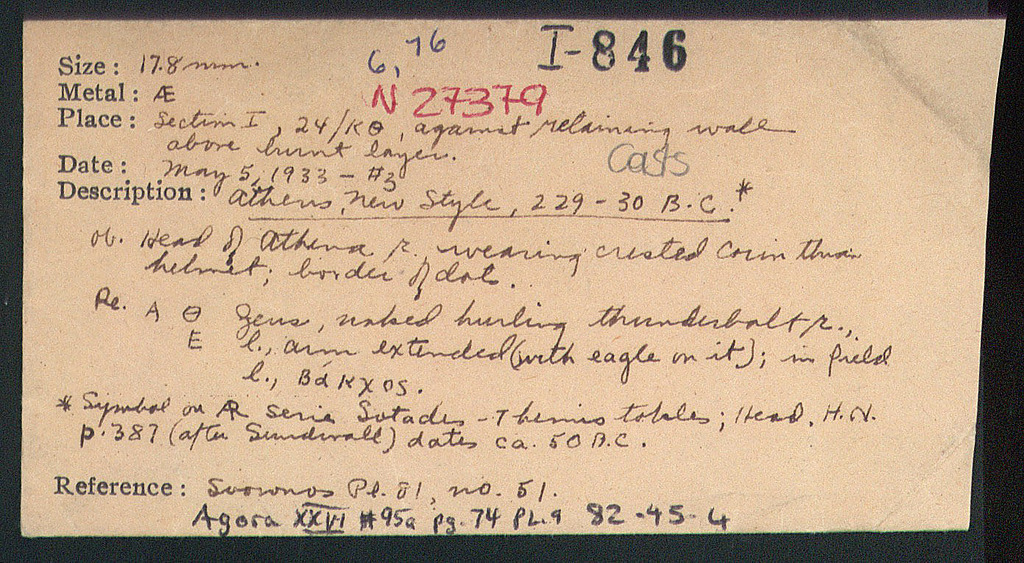 6, 76 I-846
Size : 17.8 mm.
Metal : Æ N 27379
Place : Section I, 24/ΚΘ, against retaining wall
above burnt layer. Casts
Date : May 5, 1933 - #3
Description : Athens, New Style, 229 - 30 B.C.*
Ob. Head of Athena r. wearing crested Corinthian
helmet; border of dots.
Re. Α Θ Zeus, naked hurling thunderbolt r.,
Ε l., arm extended (with eagle on it); in field
l., Βάκχος.
* Symbol on ÆR serie Sotades - Themistokles; Head, H.N.
p. 387 (after Sundwall) dates ca. 50 B.C.
Reference : Svoronos Pl. 81, no. 51.
Agora XXVI #95a pg. 74 PL.9 82-45-4